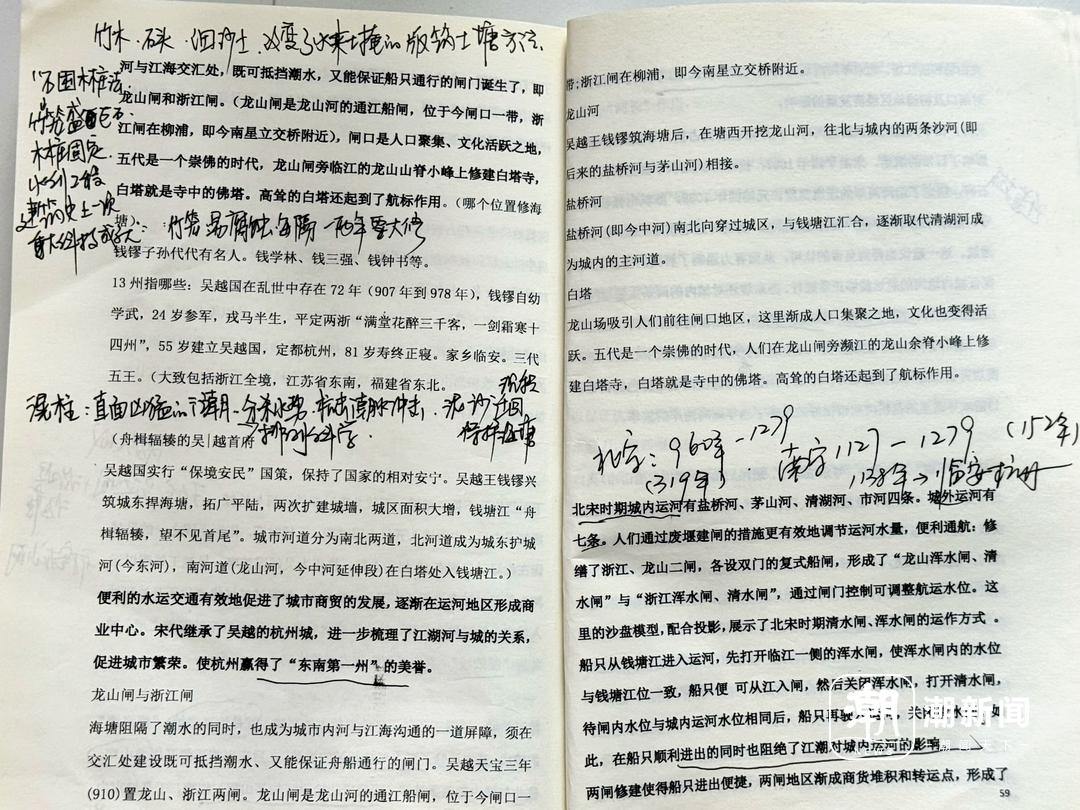 竹木、石头、细沙土、改变了以来土掩的版筑土塘方法.
"石囤木桩法:
竹笼盛巨石
木桩固定.
水利工程
史上一次
重大科技
河与江海交汇处，既可抵挡潮水，又能保证船只通行的闸门诞生了，即
龙山闸和浙江闸。（龙山闸是龙山河的通江船闸，位于今闸口一带，浙
江闸在柳浦，即今南星立交桥附近），闸口是人口聚集、文化活跃之地，
五代是一个崇佛的时代，龙山闸旁临江的龙山山脊小峰上修建白塔寺，
白塔就是寺中的佛塔。高耸的白塔还起到了航标作用。（哪个位置修海
塘）：
竹笼易腐蚀.每隔一两年要大修
钱镠子孙代代有名人。钱学林、钱三强、钱钟书等。
13 州指哪些：吴越国在乱世中存在 72 年（907 年到 978 年），钱镠自幼
学武，24 岁参军，戎马半生，平定两浙“满堂花醉三千客，一剑霜寒十
四州”，55 岁建立吴越国，定都杭州，81 岁寿终正寝。家乡临安。三代
五王。（大致包括浙江全境，江苏省东南，福建省东北。
滉柱：直面凶猛的潮、分杀水势.抗击潮水冲击.
排列科学.
保护海塘
（舟楫辐辏的吴|越首府
吴越国实行“保境安民”国策，保持了国家的相对安宁。吴越王钱镠兴
筑城东捍海塘，拓广平陆，两次扩建城墙，城区面积大增，钱塘江“舟
楫辐辏，望不见首尾”。城市河道分为南北两道，北河道成为城东护城
河(今东河)，南河道(龙山河，今中河延伸段)在白塔处入钱塘江。）
便利的水运交通有效地促进了城市商贸的发展，逐渐在运河地区形成商
业中心。宋代继承了吴越的杭州城，进一步梳理了江湖河与城的关系，
促进城市繁荣。使杭州赢得了“东南第一州”的美誉。
龙山闸与浙江闸
海塘阻隔了潮水的同时，也成为城市内河与江海沟通的一道屏障，须在
交汇处建设既可抵挡潮水、又能保证舟船通行的闸门。吴越天宝三年
(910)置龙山、浙江两闸。龙山闸是龙山河的通江船闸，位于今闸口一
带;浙江闸在柳浦，即今南星立交桥附近。
龙山河
吴越王钱镠筑海塘后，在塘西开挖龙山河，往北与城内的两条沙河(即
后来的盐桥河与茅山河）相接。
盐桥河
盐桥河(即今中河）南北向穿过城区，与钱塘江汇合，逐渐取代清湖河成
为城内的主河道。
白塔
龙山场吸引人们前往闸口地区，这里渐成人口集聚之地，文化也变得活
跃。五代是一个崇佛的时代，人们在龙山闸旁濒江的龙山余脊小峰上修
建白塔寺，白塔就是寺中的佛塔。高耸的白塔还起到了航标作用。
北宋：960年-1279
(319年)
南宋1127-1279 (152年)
1138年→临安 杭州
北宋时期城内运河有盐桥河、茅山河、清湖河、市河四条。城外运河有
七条。人们通过废堰建闸的措施更有效地调节运河水量，便利通航：修
缮了浙江、龙山二闸，各设双门的复式船闸，形成了“龙山浑水闸、清
水闸”与“浙江浑水闸、清水闸”，通过闸门控制可调整航运水位。这
里的沙盘模型，配合投影，展示了北宋时期清水闸、浑水闸的运作方式 。
船只从钱塘江进入运河，先打开临江一侧的浑水闸，使浑水闸内的水位
与钱塘江位一致，船只便 可从江入闸，然后关闭浑水闸，打开清水闸，
待闸内水位与城内运河水位相同后，船只再驶 关闭 水 如
此，在船只顺利进出的同时也阻绝了江潮对城内运河的影响
两闸修建使得船只进出便捷，两闸地区渐成商货堆积和转运点，形成了
59
潮新闻